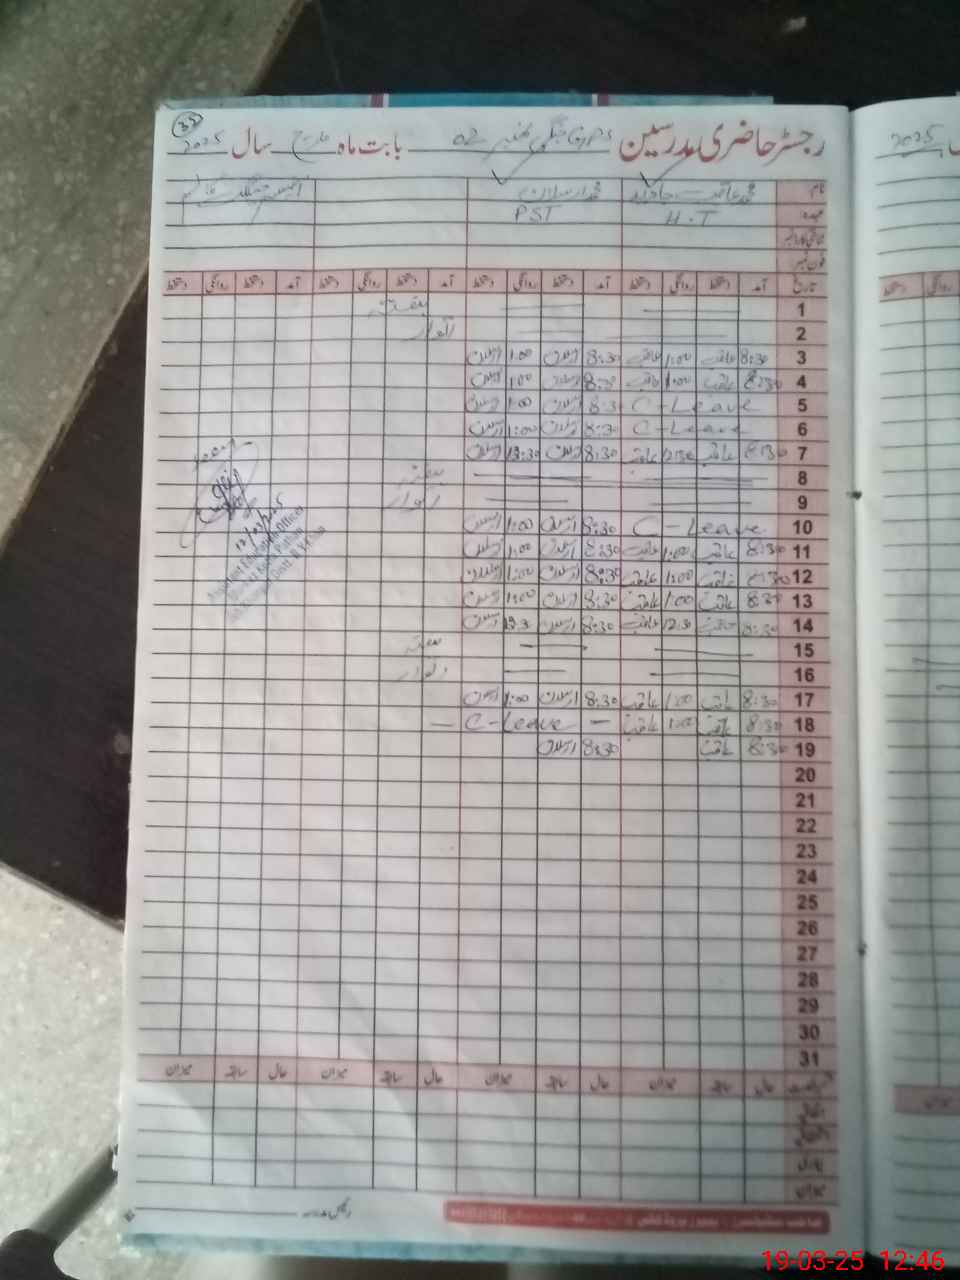 رجسٹر حاضری مدرسین GPS جنگی نمبر 02 بابت ماہ مارچ سال 2025
33
2025
نام محمد عاقب جاوید محمد ارسلان
عہدہ H.T PST
فون نمبر
تاریخ آمد دستخط روانگی دستخط آمد دستخط روانگی دستخط آمد دستخط روانگی دستخط آمد دستخط روانگی دستخط
1 ہفتہ
2 اتوار
3 8:30 عاقب 1:00 عاقب 8:30 ارسلان 1:00 ارسلان
4 8:30 عاقب 1:00 عاقب 8:30 ارسلان 1:00 ارسلان
5 C-Leave 8:30 ارسلان 1:00 ارسلان
6 C-Leave 8:30 ارسلان 1:00 ارسلان
7 8:30 عاقب 12:30 عاقب 8:30 ارسلان 12:30 ارسلان
8 ہفتہ
9 اتوار
10 C-Leave 8:30 ارسلان 1:00 ارسلان
11 8:30 عاقب 1:00 عاقب 8:30 ارسلان 1:00 ارسلان
12 8:30 عاقب 1:00 عاقب 8:30 ارسلان 1:00 ارسلان
13 8:30 عاقب 1:00 عاقب 8:30 ارسلان 1:00 ارسلان
14 8:30 عاقب 12:30 عاقب 8:30 ارسلان 12:30 ارسلان
15 ہفتہ
16 اتوار
17 8:30 عاقب 1:00 عاقب 8:30 ارسلان 1:00 ارسلان
18 8:30 عاقب 1:00 عاقب — C-Leave —
19 8:30 عاقب 8:30 ارسلان
20
21
22
23
24
25
26
27
28
29
30
31
12/03/2025
Education Officer
حال سابقہ میزان حال سابقہ میزان حال سابقہ میزان حال سابقہ میزان
اتفاقی
میزان
رئیس مدرسہ
19-03-25 12:46